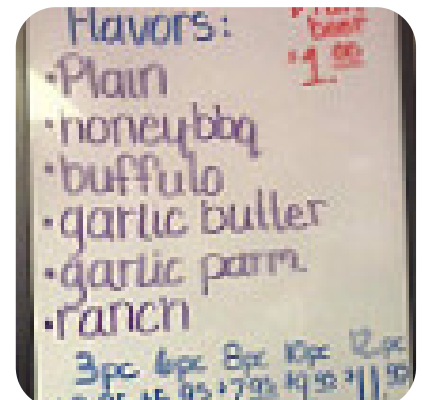 Flavors:
beer
$1.00
•Plain
•honey bbq
•buffulo
•garlic butter
•garlic parm
•ranch
3pc 6pc 8pc 10pc 12pc
$7.95 $9.95 $11.95